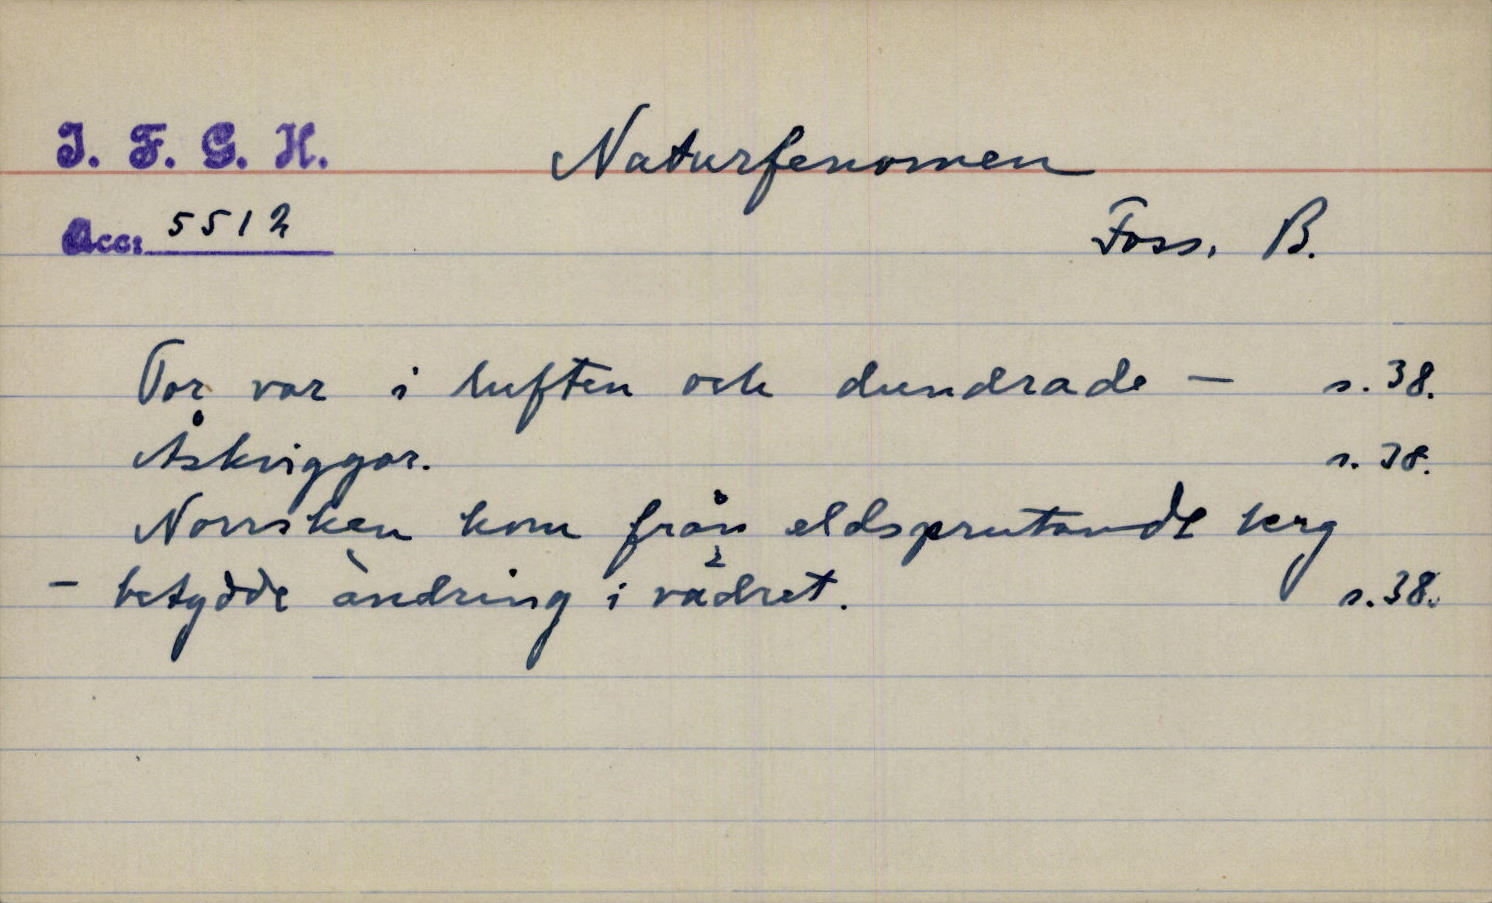 I. F. G. H.
Naturfenomen
Acc: 5512
Foss, B.
Tor var i luften och dundrade — s. 38.
Åskviggar. s. 38.
Norrsken kom från eldsprutande berg
— betydde ändring i vädret. s. 38.